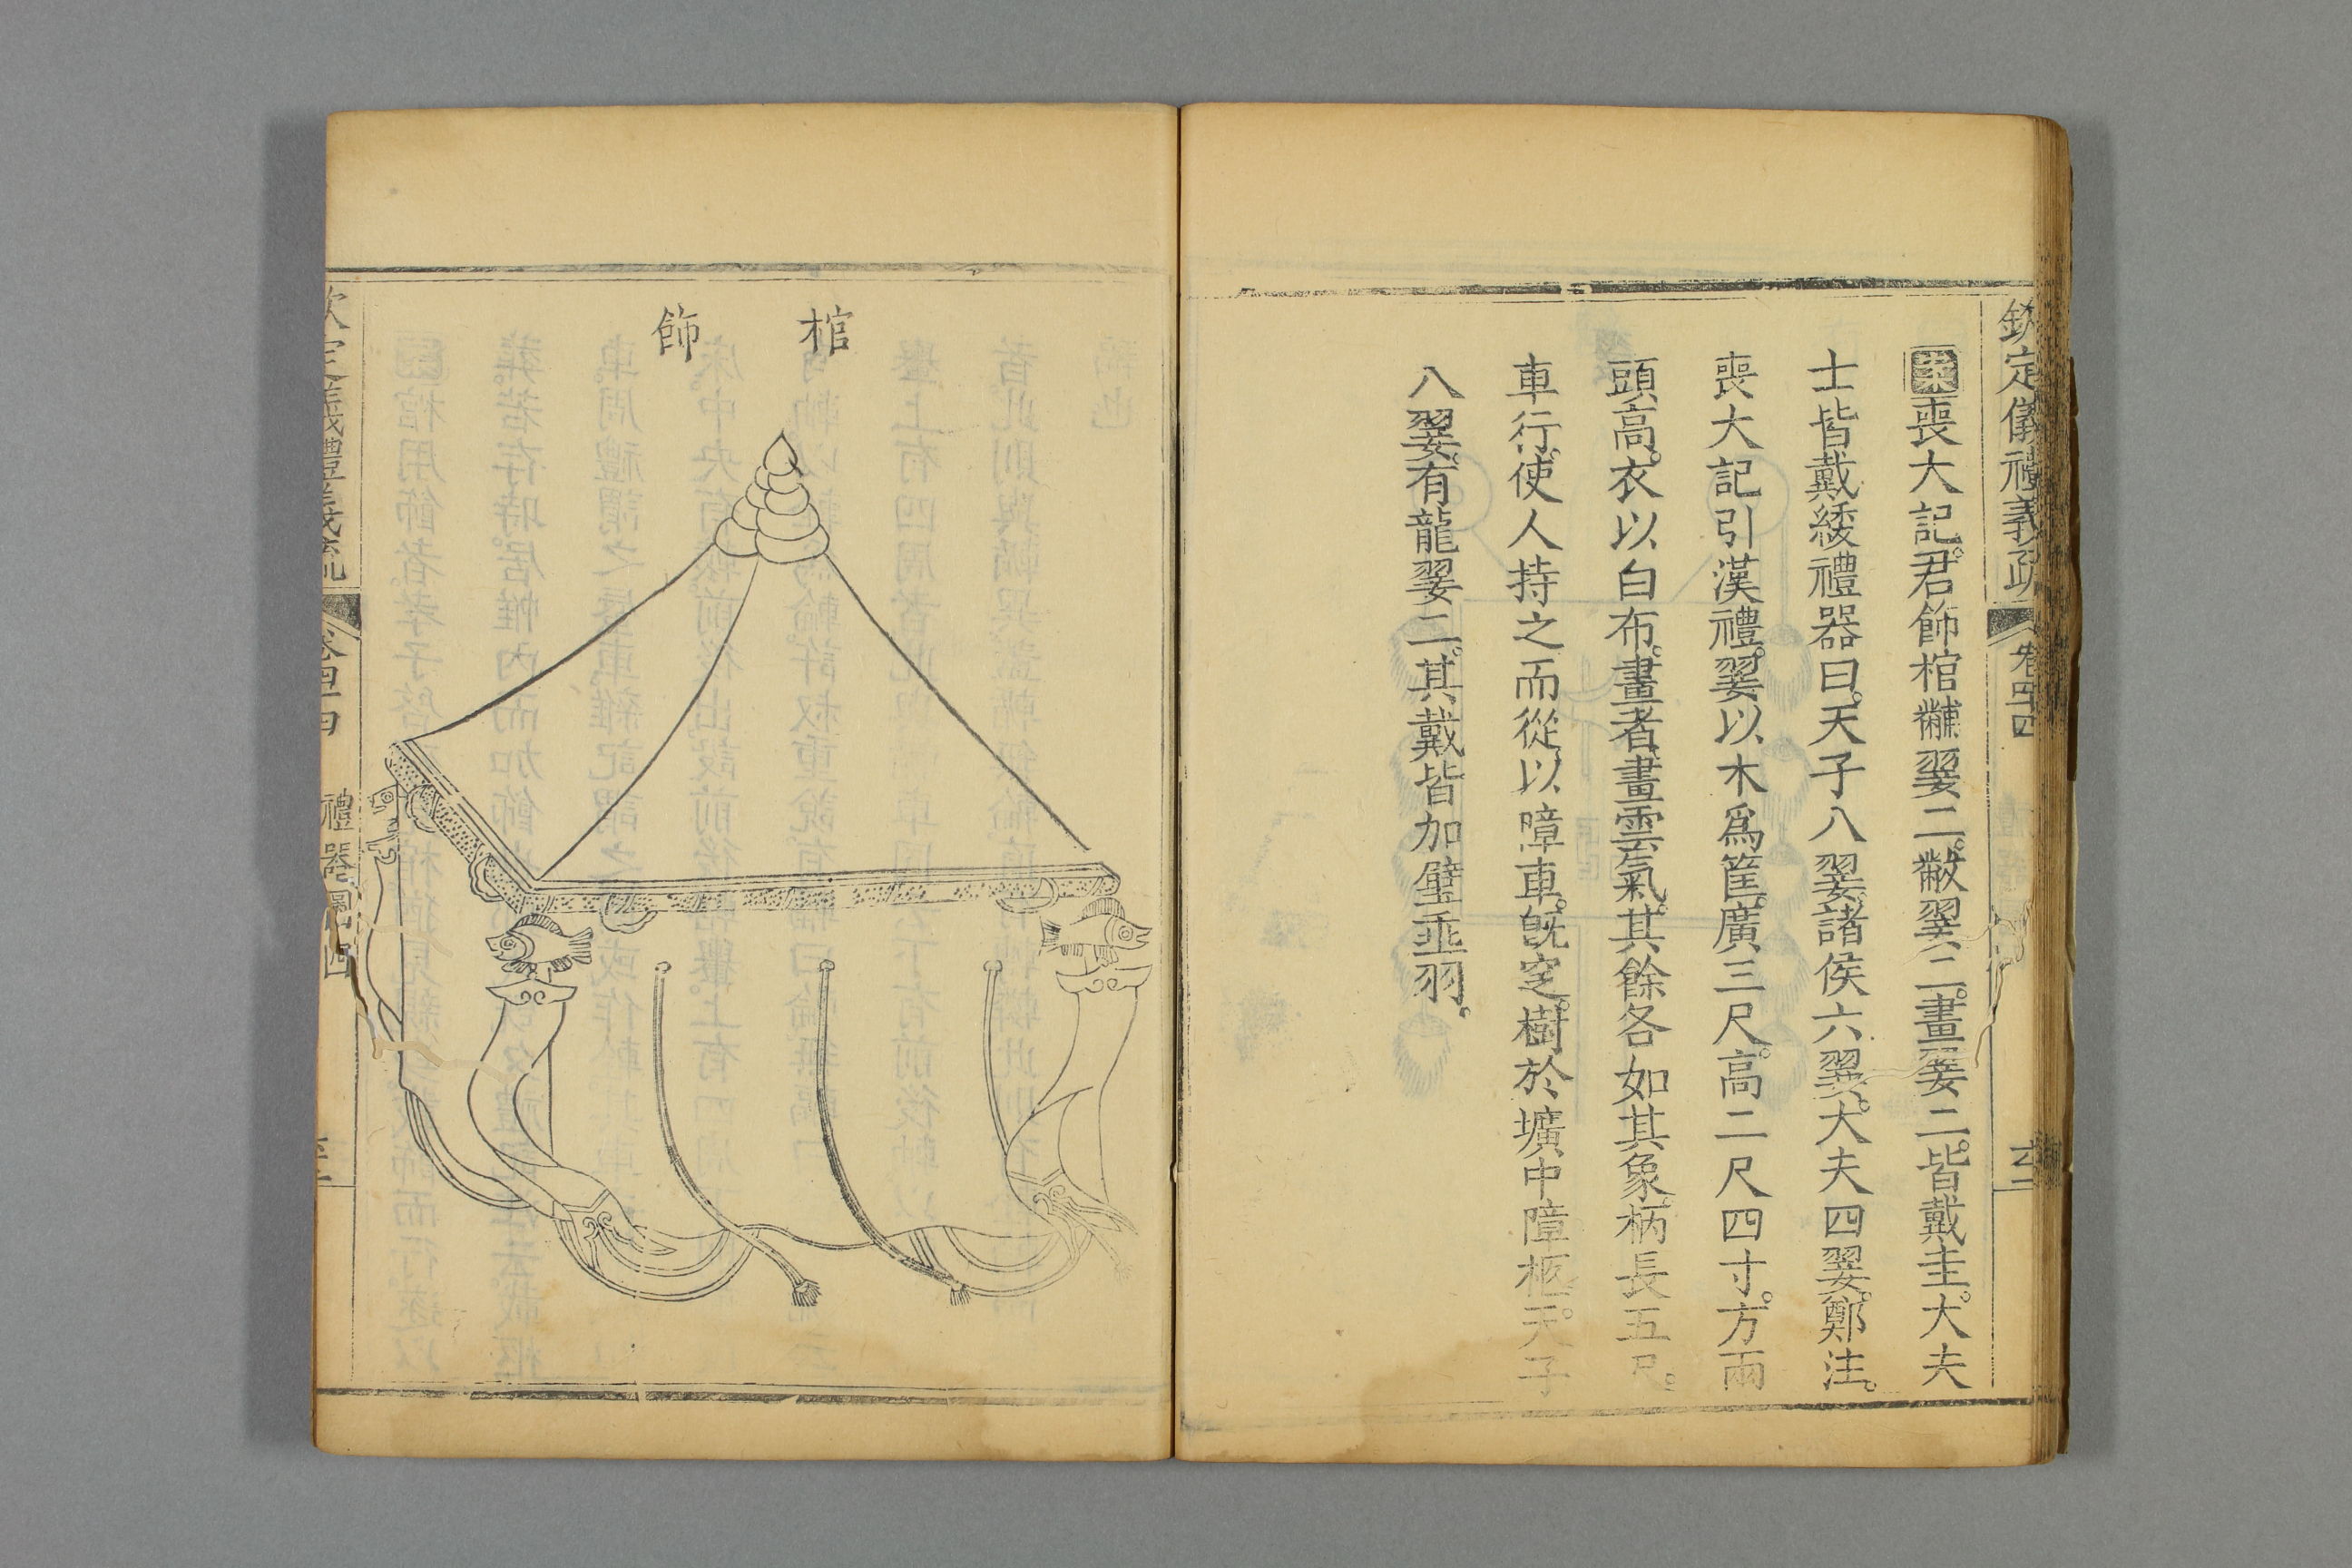 欽定儀禮義疏 卷四十四
案喪大記君飾棺黼翣二黻翣二畫翣二皆戴圭大夫
士皆戴綏禮器曰天子八翣諸侯六翣大夫四翣鄭注
喪大記引漢禮翣以木爲筐廣三尺高二尺四寸方兩
頭高衣以白布畫者畫雲氣其餘各如其象柄長五尺
車行使人持之而從以障車旣窆樹於壙中障柩天子
八翣有龍翣二其戴皆加璧垂羽
棺飾
欽定儀禮義疏 卷四十四 禮器圖四